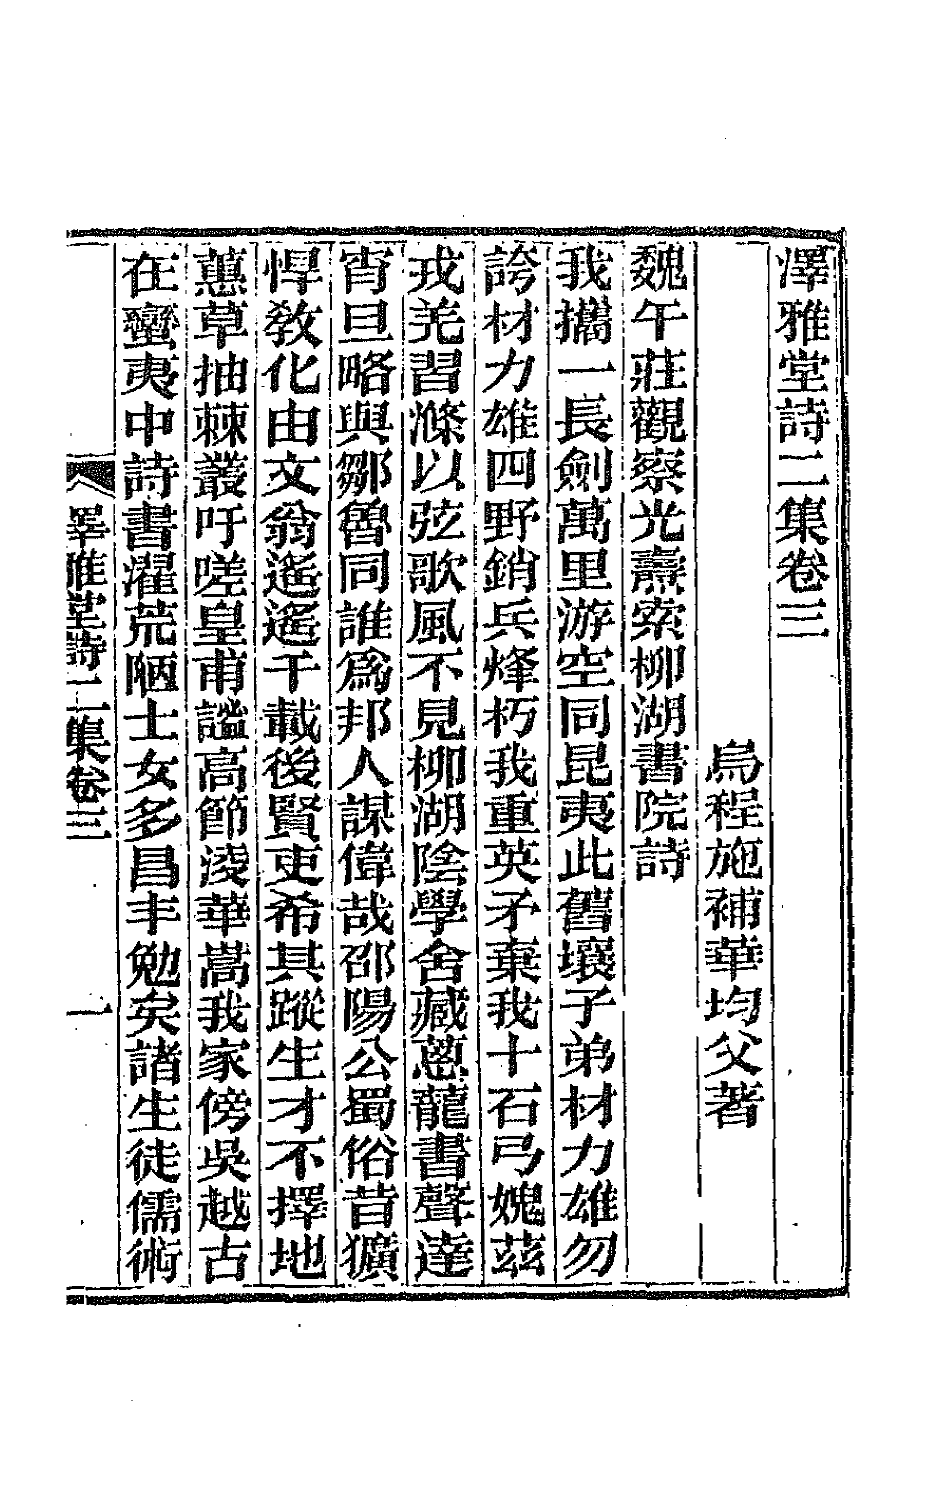 澤雅堂詩二集卷三
烏程施補華均父著
魏午莊觀察光燾索柳湖書院詩
我攜一長劍萬里游空同昆夷此舊壤子弟材力雄勿
誇材力雄四野銷兵烽朽我重英矛棄我十石弓媿茲
戎羌習滌以弦歌風不見柳湖陰學舍藏蔥龍書聲達
宵旦略與鄒魯同誰為邦人謀偉哉邵陽公蜀俗昔獷
悍教化由文翁遙遙千載後賢吏希其蹤生才不擇地
蕙草抽棘叢吁嗟皇甫謐高節淩華嵩我家傍吳越古
在蠻夷中詩書濯荒陋士女多昌丰勉矣諸生徒儒術
澤雅堂詩二集卷三
一